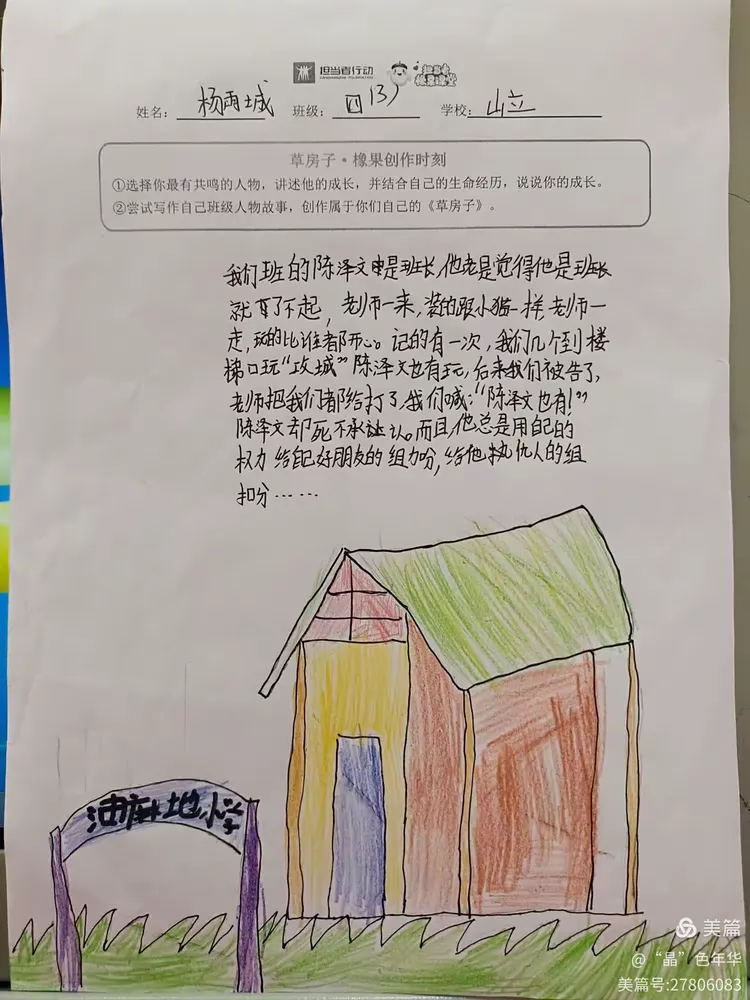 担当者行动
姓名：杨雨城 班级：四(3) 学校：山立
草房子·橡果创作时刻
①选择你最有共鸣的人物，讲述他的成长，并结合自己的生命经历，说说你的成长。
②尝试写作自己班级人物故事，创作属于你们自己的《草房子》。
我们班的陈泽文是班长，他老是觉得他是班长
就了不起，老师一来，装的跟小猫一样，老师一
走，玩的比谁都开心。记的有一次，我们几个到楼
梯口玩“攻城”陈泽文也有玩，后来我们被告了，
老师把我们都给打了，我们喊：“陈泽文也有！”
陈泽文却死不承认。而且，他总是用自己的
权力给自己好朋友的组加分，给他执仇人的组
扣分……
油麻地小学
美篇
@“晶”色年华
美篇号:27806083